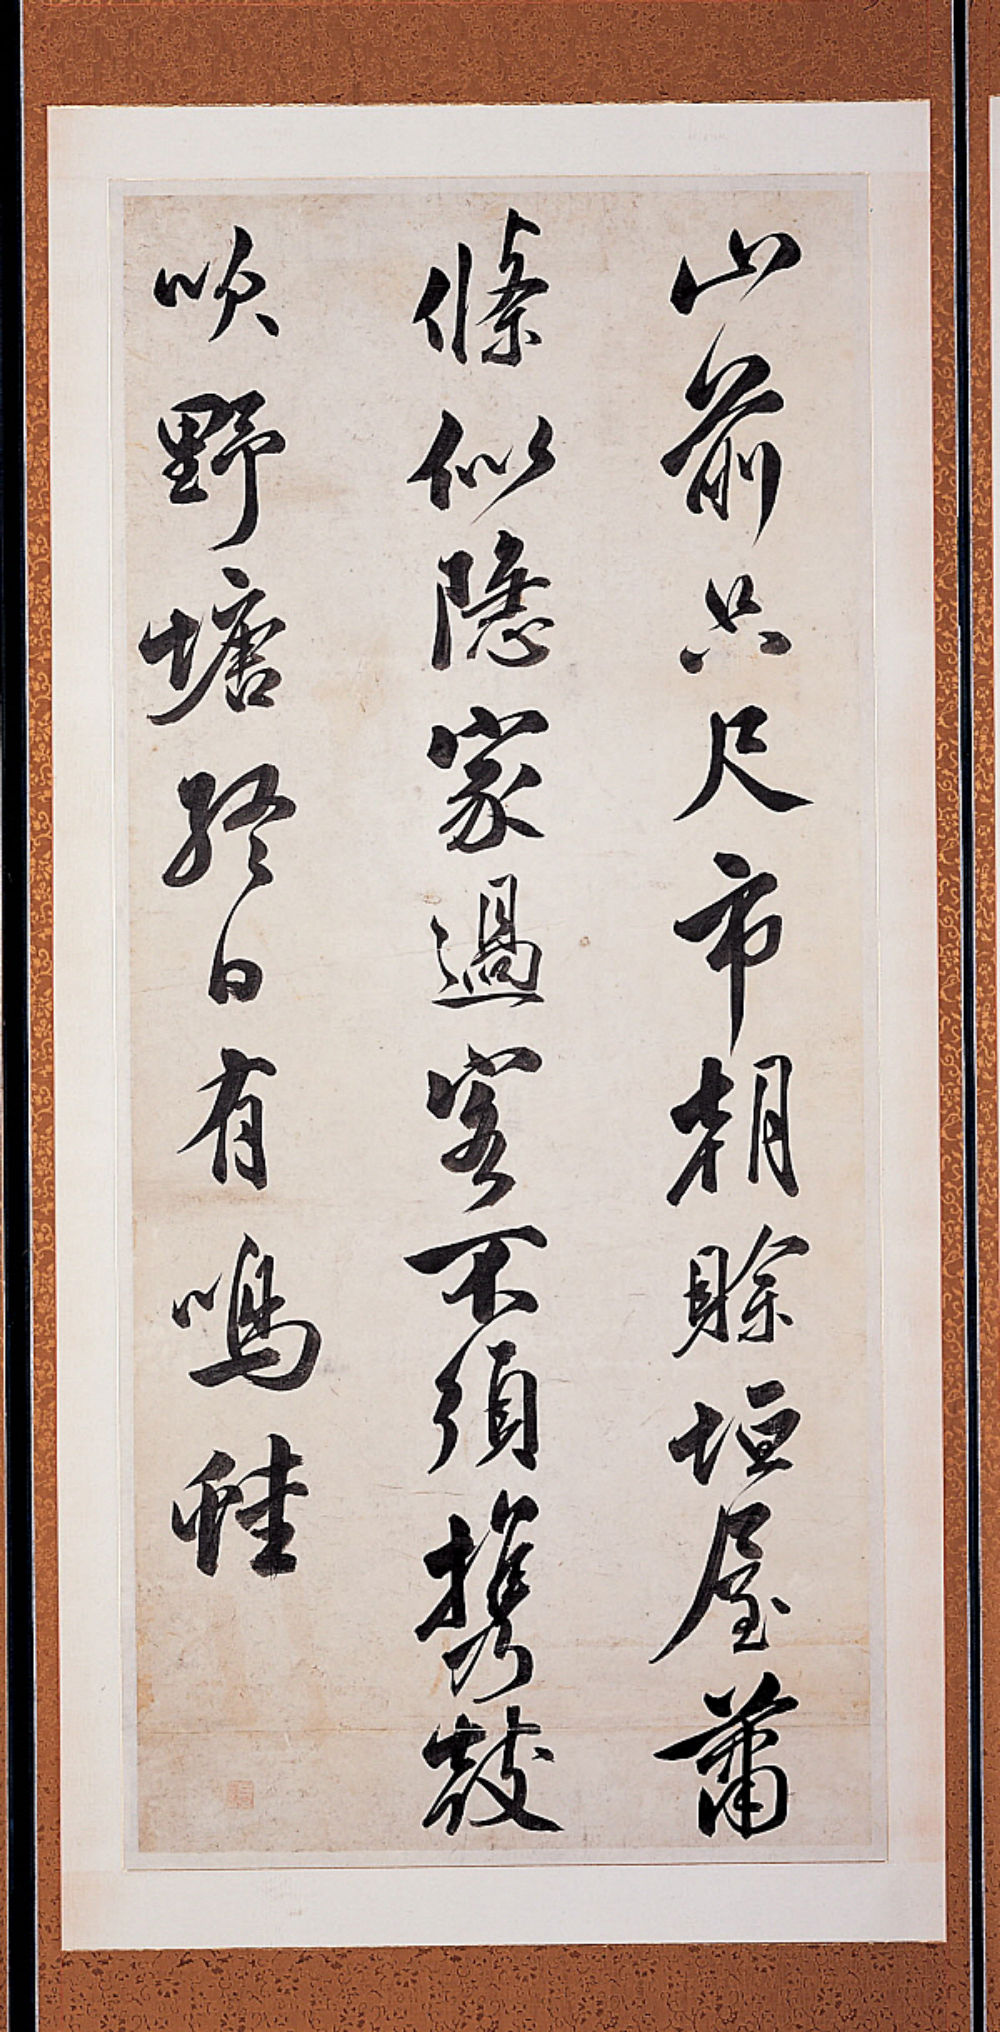 山前只尺市朝賖垣屋蕭
條似隱家過客不須携鼓
吹野塘終日有鳴蛙